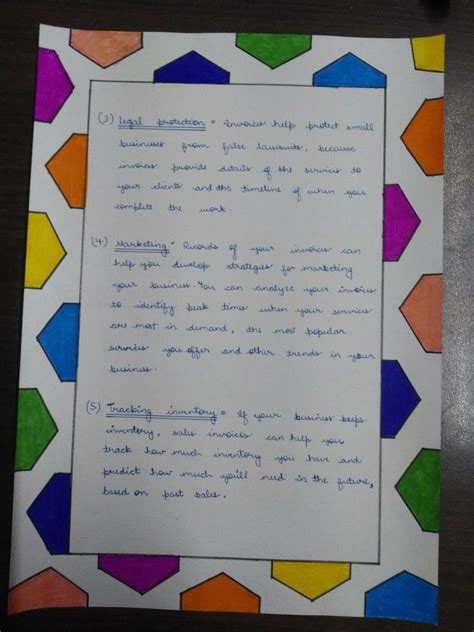 (3) Legal protection = Invoices help protect small
businesses from false lawsuits, because
invoices provide details of the services to
your clients and the timeline of when you
complete the work.
(4) Marketing = Records of your invoices can
help you develop strategies for marketing
your business. You can analyze your invoices
to identify peak times when your services
are most in demand, the most popular
services you offer and other trends in your
business.
(5) Tracking inventory = If your business keeps
inventory, sales invoices can help you
track how much inventory you have and
predict how much you'll need in the future,
based on past sales.